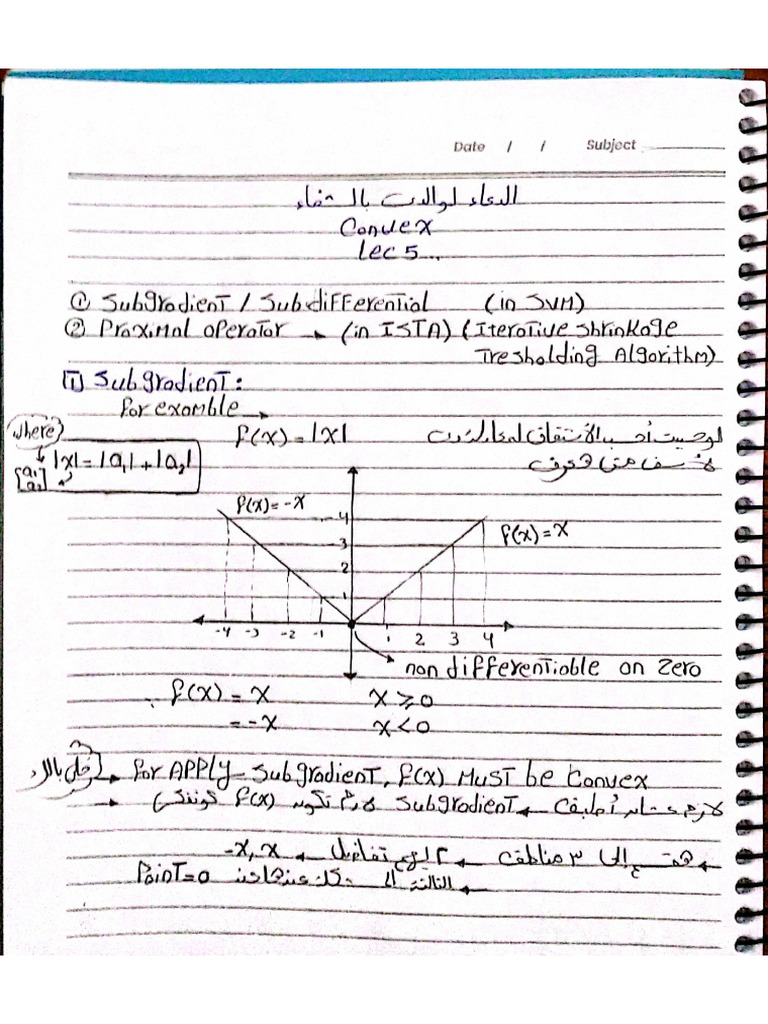 Date / / Subject
الدعاء لوالدتي بالشفاء
Convex
Lec 5...
① Subgradient / Subdifferential (in SVM)
② Proximal operator → (in ISTA) (Iterative shrinkage
Tresholding Algorithm)
[1] Subgradient:
For examble →
where
f(x) = |x|
لو حبيت أحسب الاشتقاق
|x| = |a₁| + |a₂|
[a₁
a₂]
f(x) = -x
f(x) = x
4
3
2
1
-4 -3 -2 -1 1 2 3 4
non differentiable on Zero
∴ f(x) = x x ≥ 0
= -x x < 0
خلي بالك → For APPly Subgradient, f(x) Must be Convex
→ لازم عشان أطبق Subgradient ← لازم تكون f(x) كونفكس
إلى ٣ مناطق ← ٢ تفاضل ← -x, x
← التالتة عندها Point = 0